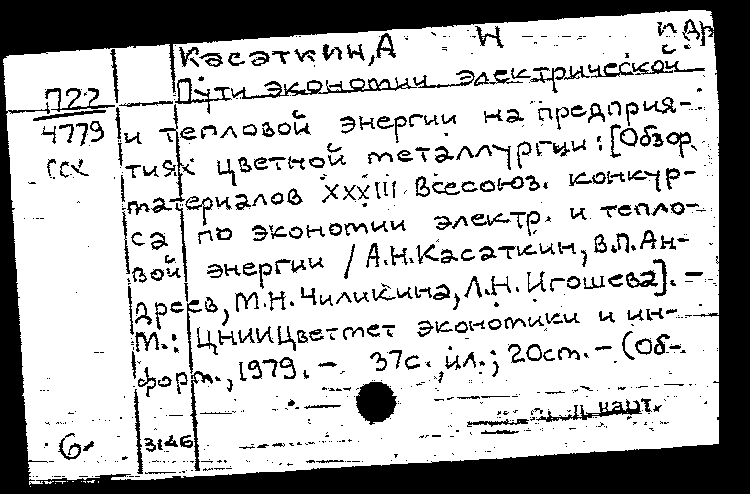 Касаткин, А Н и др
П22
Пути экономии электрической
4779
и тепловой энергии на предприя-
ССХ
тиях цветной металлургии: [Обзор
материалов XXXIII Всесоюз. конкур-
са по экономии электр. и тепло-
вой энергии / А.Н.Касаткин, В.П.Ан-
дреев, М.Н.Чиликина, Л.Н.Игошева]. –
М.: ЦНИИЦветмет экономики и ин-
форм., 1979. – 37с., ил.; 20см. – (Об-
карт.
6
3146